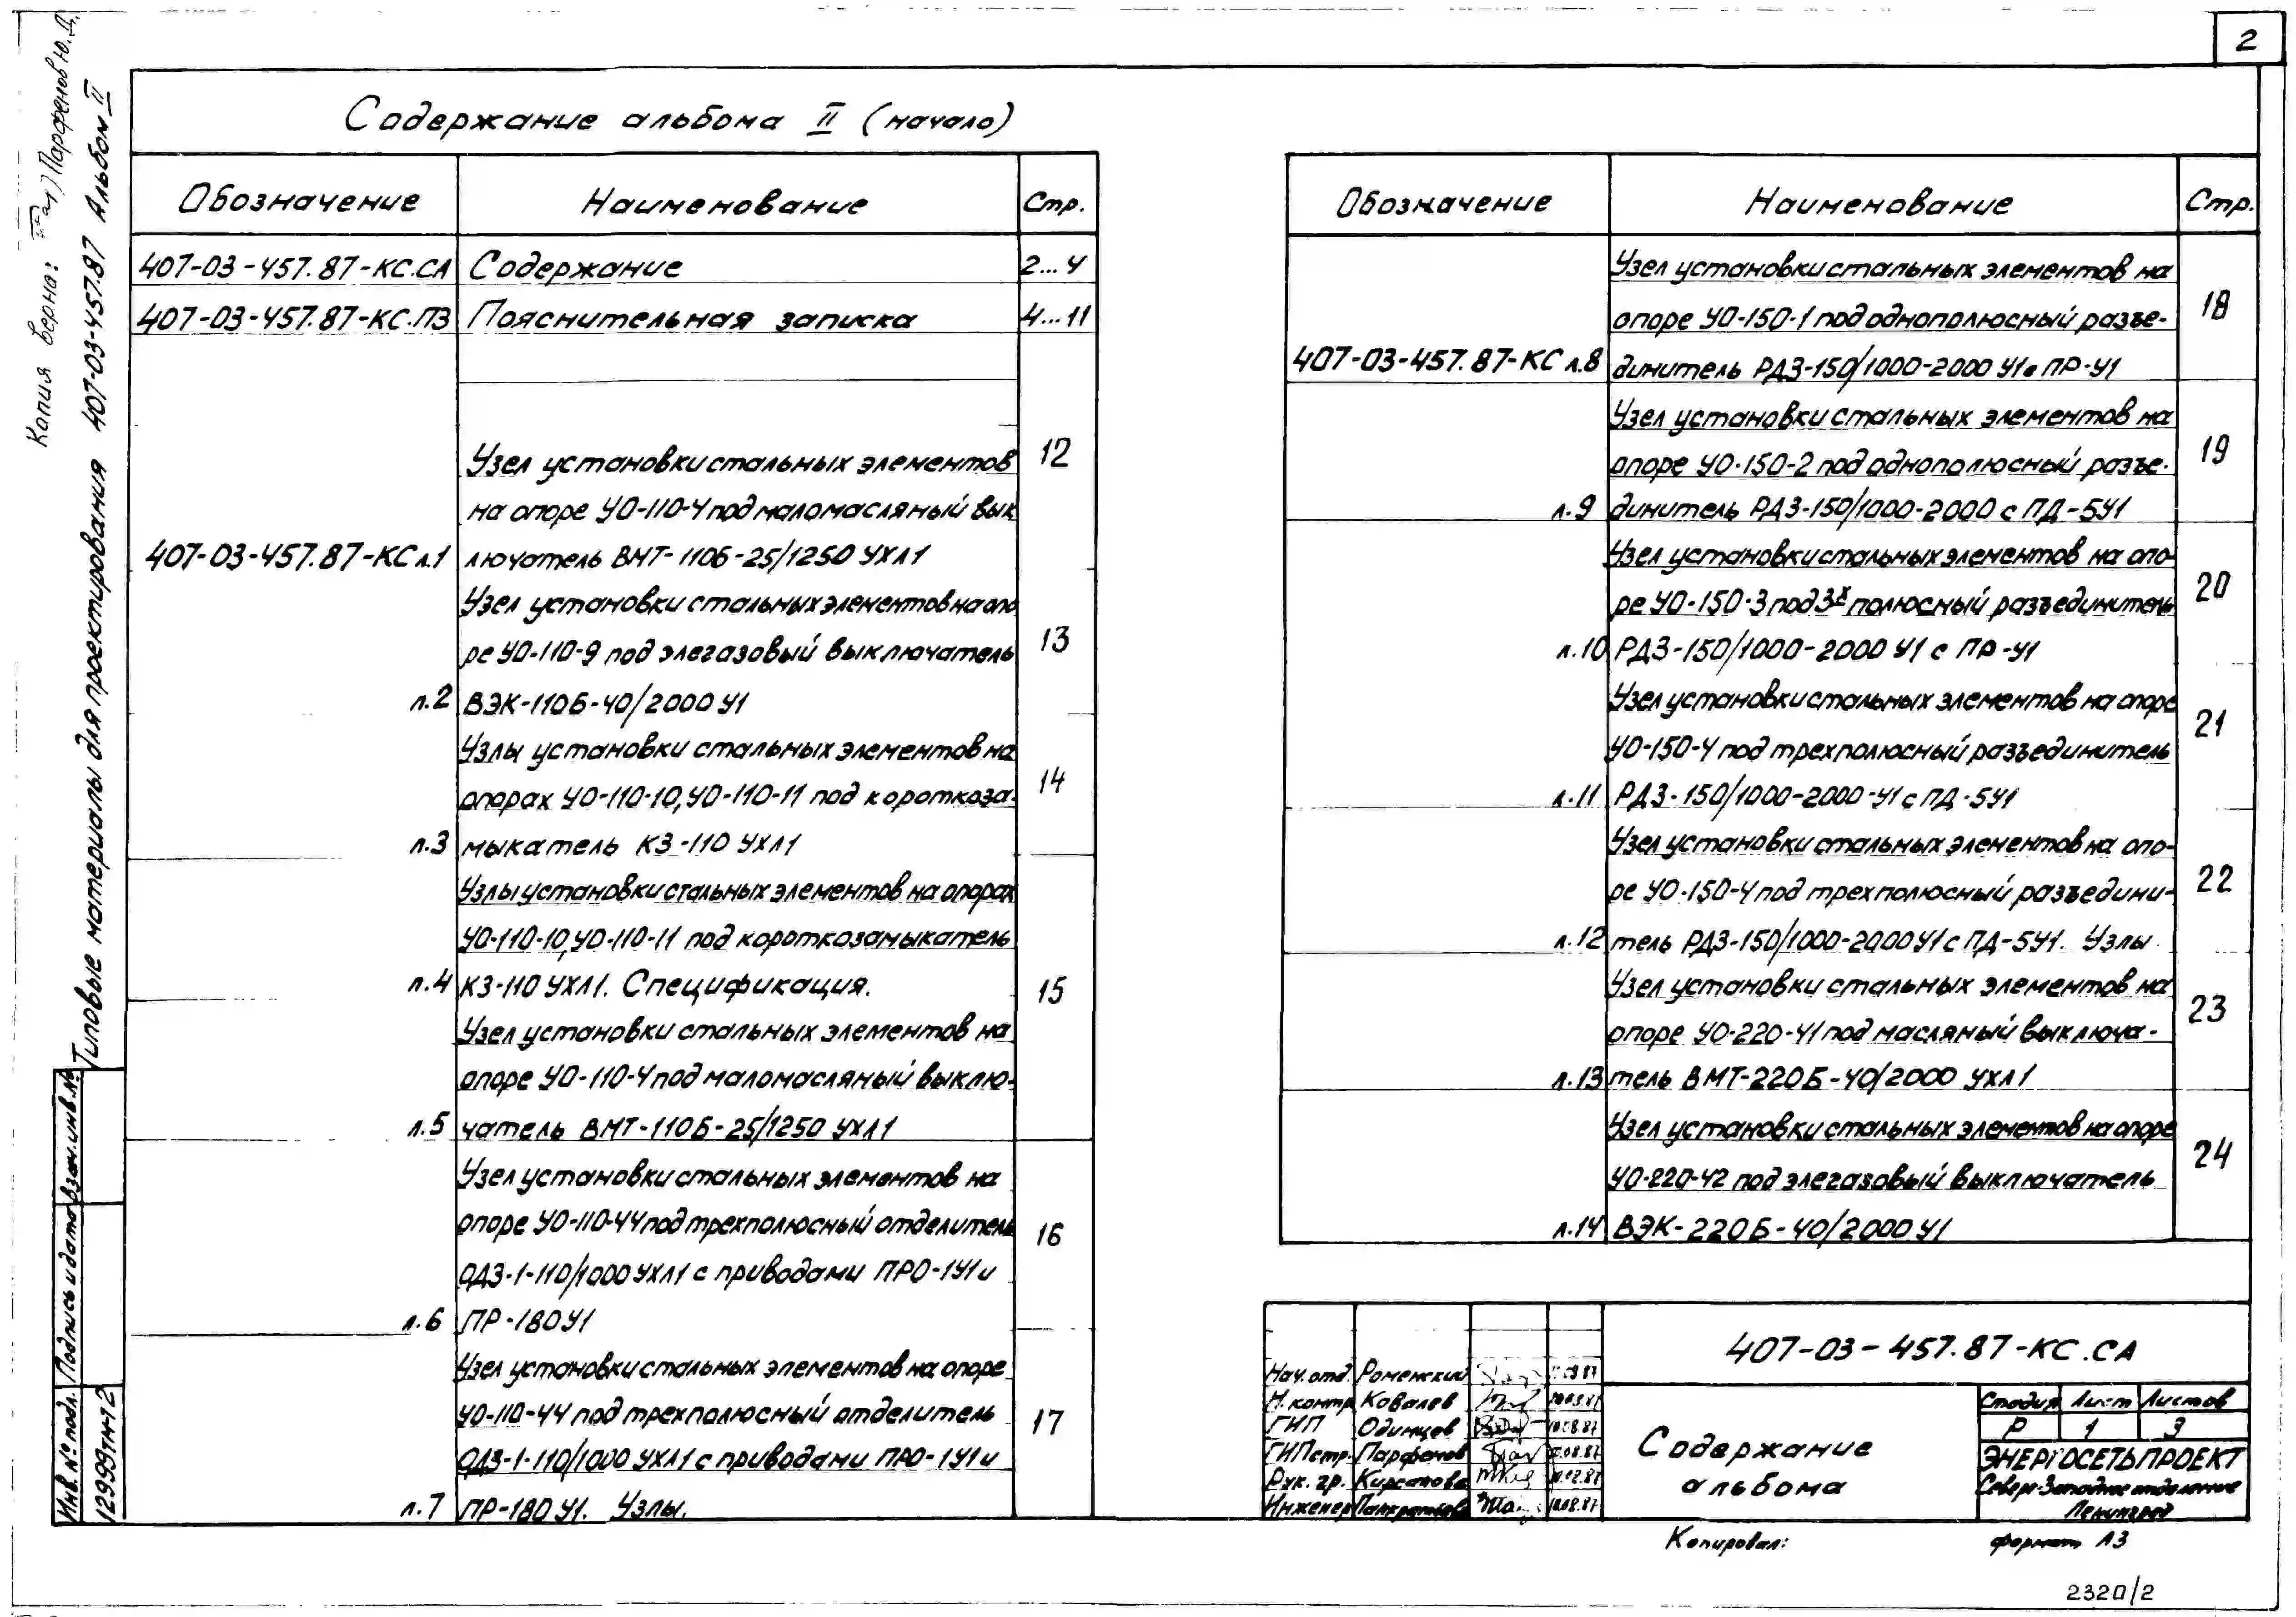 2
Содержание альбома II (начало)
Обозначение Наименование Стр.
407-03-457.87-КС.СА Содержание 2...4
407-03-457.87-КС.ПЗ Пояснительная записка 4...11
Узел установки стальных элементов 12
на опоре УО-110-4 под маломасляный вык
407-03-457.87-КС л.1 лючатель ВМТ-110Б-25/1250 УХЛ1
Узел установки стальных элементов на опо
ре УО-110-9 под элегазовый выключатель 13
л.2 ВЭК-110Б-40/2000 У1
Узлы установки стальных элементов на
опорах УО-110-10, УО-110-11 под короткоза- 14
л.3 мыкатель КЗ-110 УХЛ1
Узлы установки стальных элементов на опорах
УО-110-10, УО-110-11 под короткозамыкатель
л.4 КЗ-110 УХЛ1. Спецификация. 15
Узел установки стальных элементов на
опоре УО-110-4 под маломасляный выклю-
л.5 чатель ВМТ-110Б-25/1250 УХЛ1
Узел установки стальных элементов на
опоре УО-110-44 под трехполюсный отделитель 16
ОДЗ-1-110/1000 УХЛ1 с приводами ПРО-1У1 и
л.6 ПР-180У1
Узел установки стальных элементов на опоре
УО-110-44 под трехполюсный отделитель 17
ОДЗ-1-110/1000 УХЛ1 с приводами ПРО-1У1 и
л.7 ПР-180У1. Узлы.
Обозначение Наименование Стр.
Узел установки стальных элементов на
опоре УО-150-1 под однополюсный разъе- 18
407-03-457.87-КС л.8 динитель РДЗ-150/1000-2000 У1 с ПР-У1
Узел установки стальных элементов на
опоре УО-150-2 под однополюсный разъе- 19
л.9 динитель РДЗ-150/1000-2000 с ПД-5У1
Узел установки стальных элементов на опо-
ре УО-150-3 под 3х полюсный разъединитель 20
л.10 РДЗ-150/1000-2000 У1 с ПР-У1
Узел установки стальных элементов на опоре
УО-150-4 под трехполюсный разъединитель 21
л.11 РДЗ-150/1000-2000-У1 с ПД-5У1
Узел установки стальных элементов на опо-
ре УО-150-4 под трехполюсный разъедини- 22
л.12 тель РДЗ-150/1000-2000У1 с ПД-5У1. Узлы
Узел установки стальных элементов на
опоре УО-220-41 под масляный выключа- 23
л.13 тель ВМТ-220Б-40/2000 УХЛ1
Узел установки стальных элементов на опоре
УО-220-42 под элегазовый выключатель 24
л.14 ВЭК-220Б-40/2000 У1
407-03-457.87-КС.СА
Нач. отд. Роменский
Н. контр Ковалев
ГИП Одинцов 10.08.87
ГИПстр. Парфенов
Рук. гр. Кирсанова
Инженер Панкратьева 10.08.87
Содержание
альбома
Стадия Лист Листов
Р 1 3
ЭНЕРГОСЕТЬПРОЕКТ
Северо-Западное отделение
Ленинград
Копировал: формат А3
2320/2
Копия верна: Парфенов Ю.Д.
Типовые материалы для проектирования 407-03-457.87 Альбом II
Взам. инв. №
Подпись и дата
Инв. № подл.
12999тм-т2